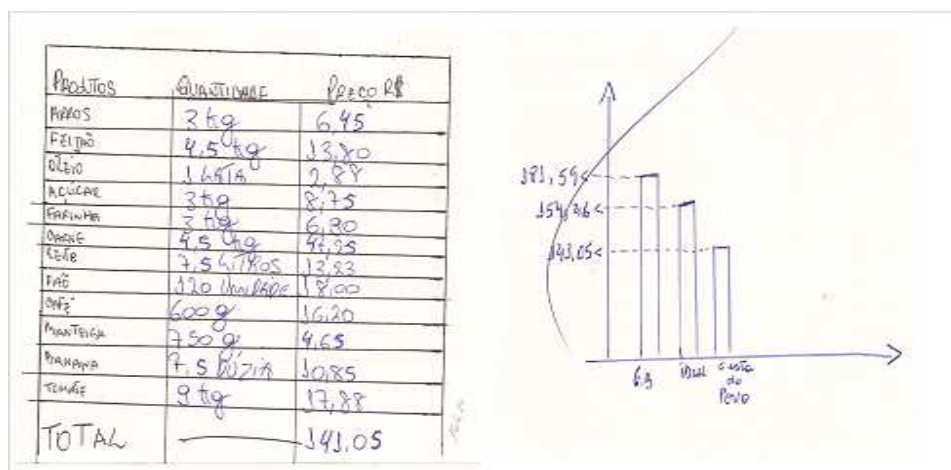 PRODUTOS QUANTIDADE PREÇO R$
ARROS 3 kg 6,45
FEIJÃO 4,5 kg 13,80
OLEIO 1 LATA 2,88
AÇÚCAR 3 kg 8,75
FARINHA 3 kg 6,90
CARNE 4,5 kg
LEITE 7,5 LITROS
PÃO 120 UNIDADE 18,00
CAFÉ 600 g 16,20
MANTEIGA 750 g 4,65
BANANA 7,5 DÚZIA 10,85
TOMATE 9 kg 17,88
TOTAL 141.05
181,59
143,05
cesta
do
Povo